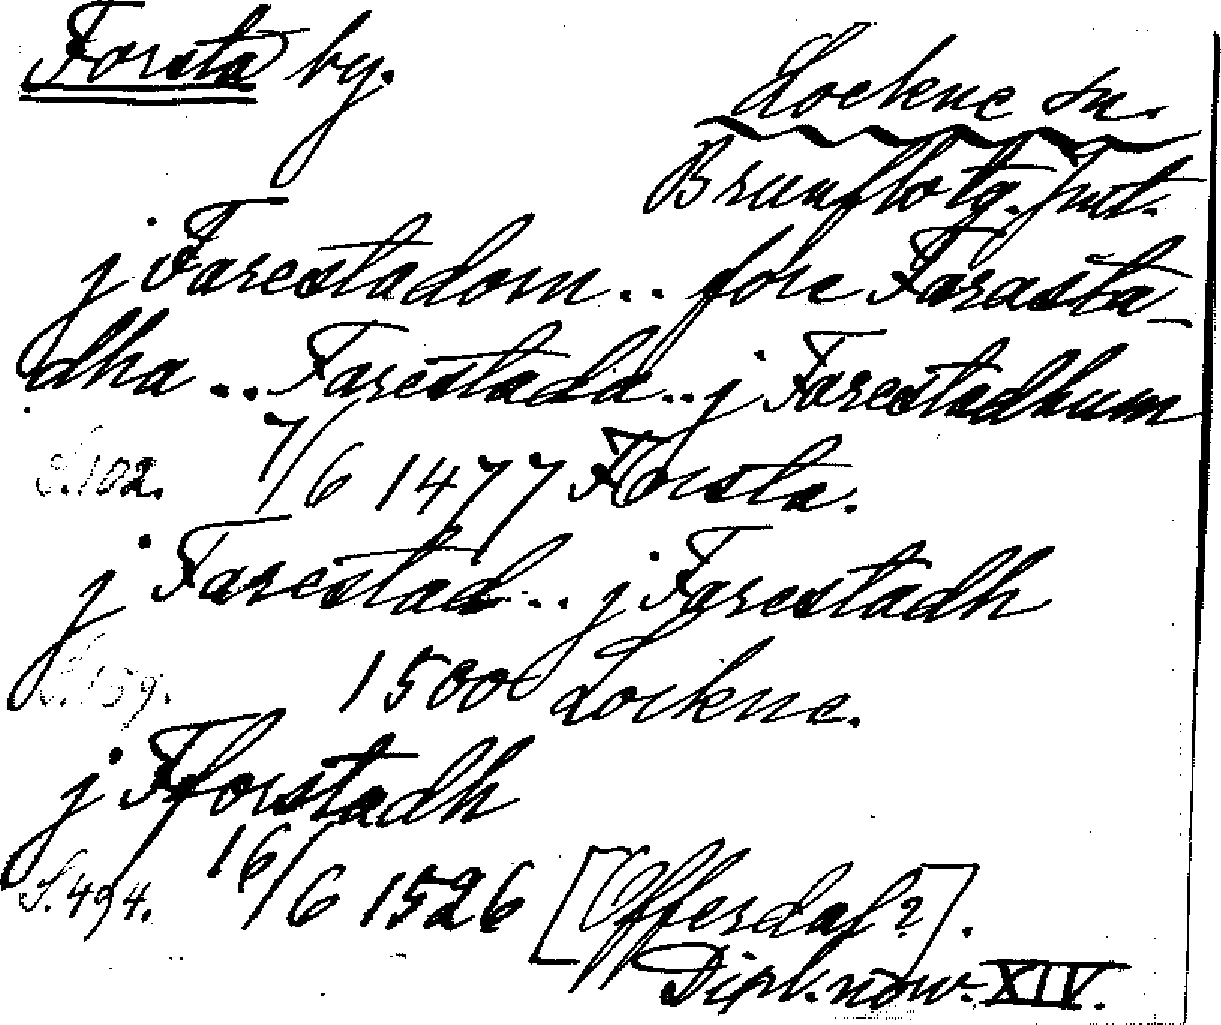 Forsta by.
Lockne sn.
Brunflo tg. Jmt.
j Farestadom .. fore Farasta-
dha .. Farestada .. j Farestadhum
S. 102. 7/6 1477 Forsta.
j Farestad .. j Farestadh
S. 159. 1500 Lockne.
j Fforstadh
S. 494. 16/6 1526 [Offerdal?].
Dipl. norv. XIV.